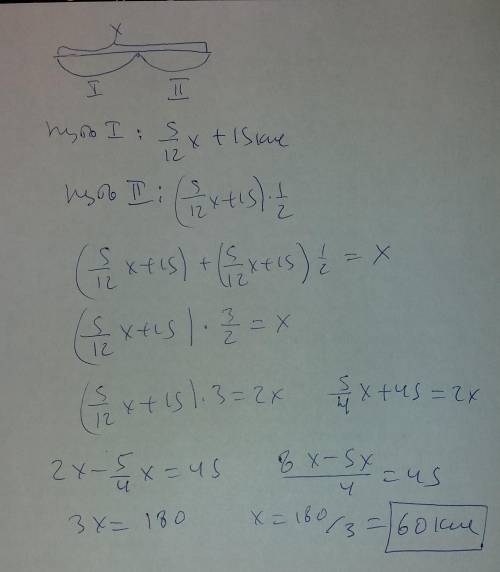 x
I II
путь I: 5/12 x + 15 км
путь II: (5/12 x + 15) · 1/2
(5/12 x + 15) + (5/12 x + 15) 1/2 = x
(5/12 x + 15) · 3/2 = x
(5/12 x + 15) · 3 = 2x 5/4 x + 45 = 2x
2x - 5/4 x = 45 (8x - 5x)/4 = 45
3x = 180 x = 180/3 = 60 км